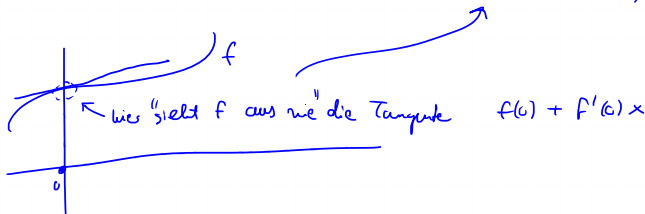 f
hier "sieht f aus wie" die Tangente f(0) + f'(0) x
0